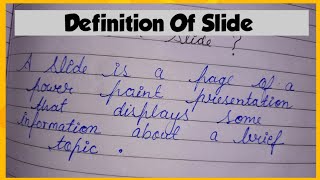 Definition Of Slide
Slide ?
A slide is a page of a
power point presentation
that displays some
information about a brief
topic .